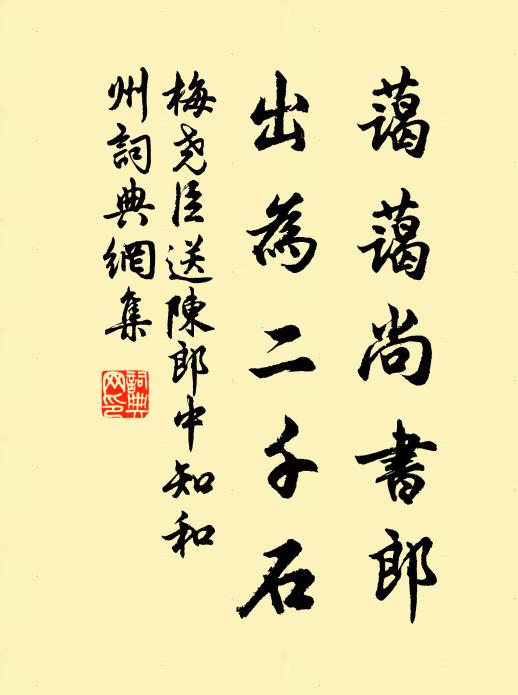 藹藹尚書郎
出為二千石
梅堯臣送陳郎中知和
州詞典網集
詞典
网印